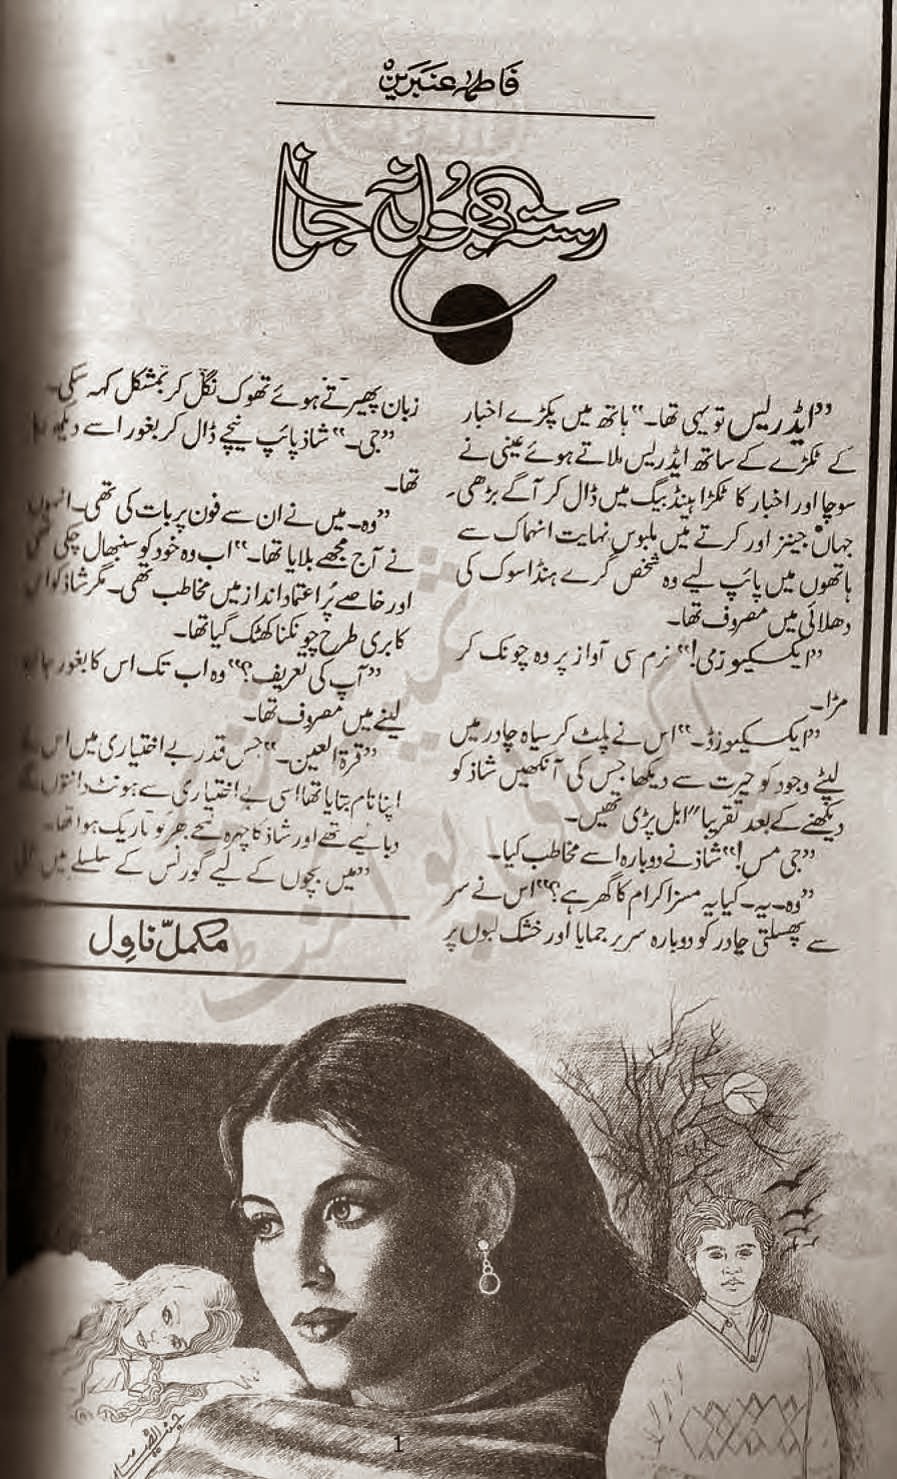 فاطمہ عنبرین
رستہ بھول نہ جانا
”ایڈریس تو یہی تھا۔“ ہاتھ میں پکڑے اخبار
کے ٹکڑے کے ساتھ ایڈریس ملاتے ہوئے عینی نے
سوچا اور اخبار کا ٹکڑا ہینڈ بیگ میں ڈال کر آگے بڑھی۔
جہاں جینز اور کرتے میں ملبوس نہایت انہماک سے
ہاتھوں میں پائپ لیے وہ شخص گرے ہنڈا سوک کی
دھلائی میں مصروف تھا۔
”ایکسکیوزمی!“ نرم سی آواز پر وہ چونک کر
مڑا۔
”ایکسکیوزڈ۔“ اس نے پلٹ کر سیاہ چادر میں
لپٹے وجود کو حیرت سے دیکھا جس کی آنکھیں شاذ کو
دیکھنے کے بعد تقریبا“ ابل پڑی تھیں۔
”جی مس!“ شاذ نے دوبارہ اسے مخاطب کیا۔
”وہ۔ یہ۔ کیا یہ مسز اکرام کا گھر ہے؟“ اس نے سر
سے پھسلتی چادر کو دوبارہ سر پر جمایا اور خشک لبوں پر
زبان پھیرتے ہوئے تھوک نگل کر بمشکل کہہ سکی۔
”جی۔“ شاذ پائپ نیچے ڈال کر بغور اسے دیکھ
تھا۔
”وہ۔ میں نے ان سے فون پر بات کی تھی۔ انہوں
نے آج مجھے بلایا تھا۔“ اب وہ خود کو سنبھال چکی تھی
اور خاصے پُر اعتماد انداز میں مخاطب تھی۔ مگر شاذ کو اس
کا بری طرح چونکنا کھٹک گیا تھا۔
”آپ کی تعریف؟“ وہ اب تک اس کا بغور جائزہ
لینے میں مصروف تھا۔
”قرۃ العین۔“ جس قدر بے اختیاری میں اس
اپنا نام بتایا تھا اسی بے اختیاری سے ہونٹ دانتوں
دبا لیے تھے اور شاذ کا چہرہ لمحے بھر کو تاریک ہوا تھا۔
”میں بچوں کے لیے گورنس کے سلسلے میں
مکمل ناول
1